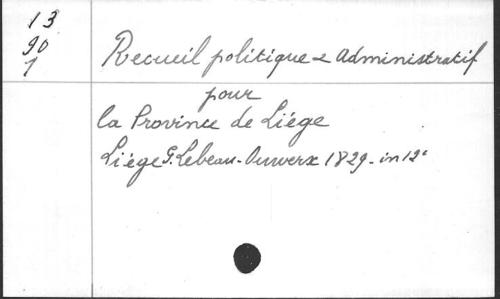 13
90
7
Recueil politique & Administratif
pour
la Province de Liége
Liége G. Lebeau-Ouwerx 1829 - in 12°